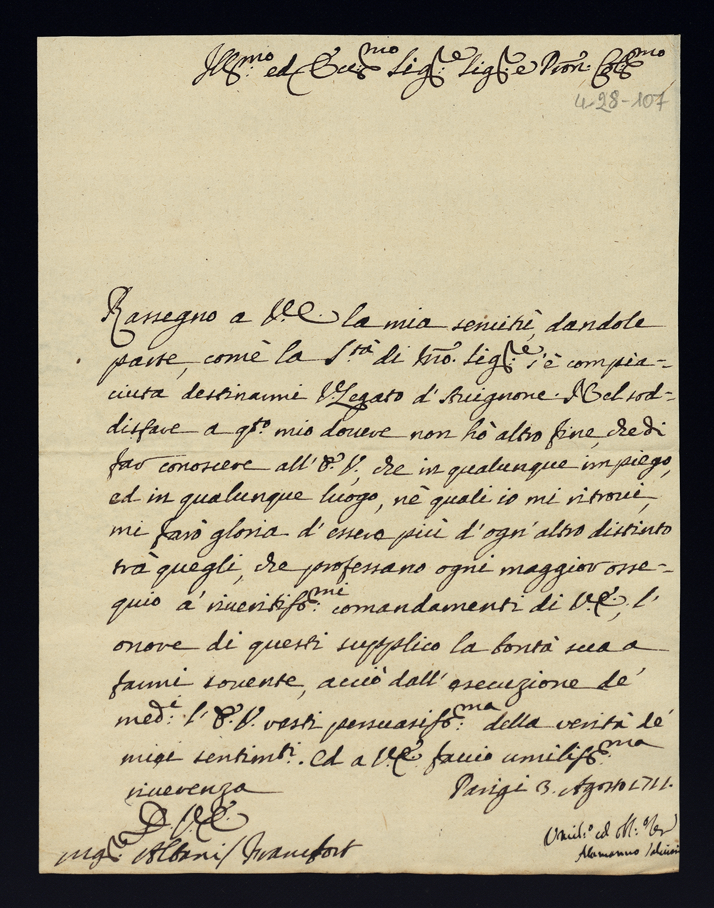 Ill:mo ed Ecc:mo Sig:re Sig:re e Pron: Col:mo
4-28-107
Rassegno a V:E. la mia servitù, dandole
parte, come la S:tà di Nro. Sig:re s'è compia=
ciuta destinarmi V:Legato d'Avignone. Nel sod=
disfare a q:to mio dovere non hò altro fine, che di
far conoscere all'E.V., che in qualunque impiego,
ed in qualunque luogo, nè quali io mi ritrovi,
mi farò gloria d'essere più d'ogn'altro distinto
trà quegli, che professano ogni maggior osse=
quio a' riveritiss:mi comandamenti di V.E., l'
onore di questi supplico la bontà sua a
farmi sovente, acciò dall'esecuzione de'
med:i l'E.V. resti persuasiss:ma della verità de'
miei sentim:ti. Ed a V.E. faccio umiliss:ma
riverenza Parigi 3. Agosto 1711.
D. V.E.
Mg:r Albani / Francfort
Umil:o ed Obl:o Ser
Alamanno Salviati